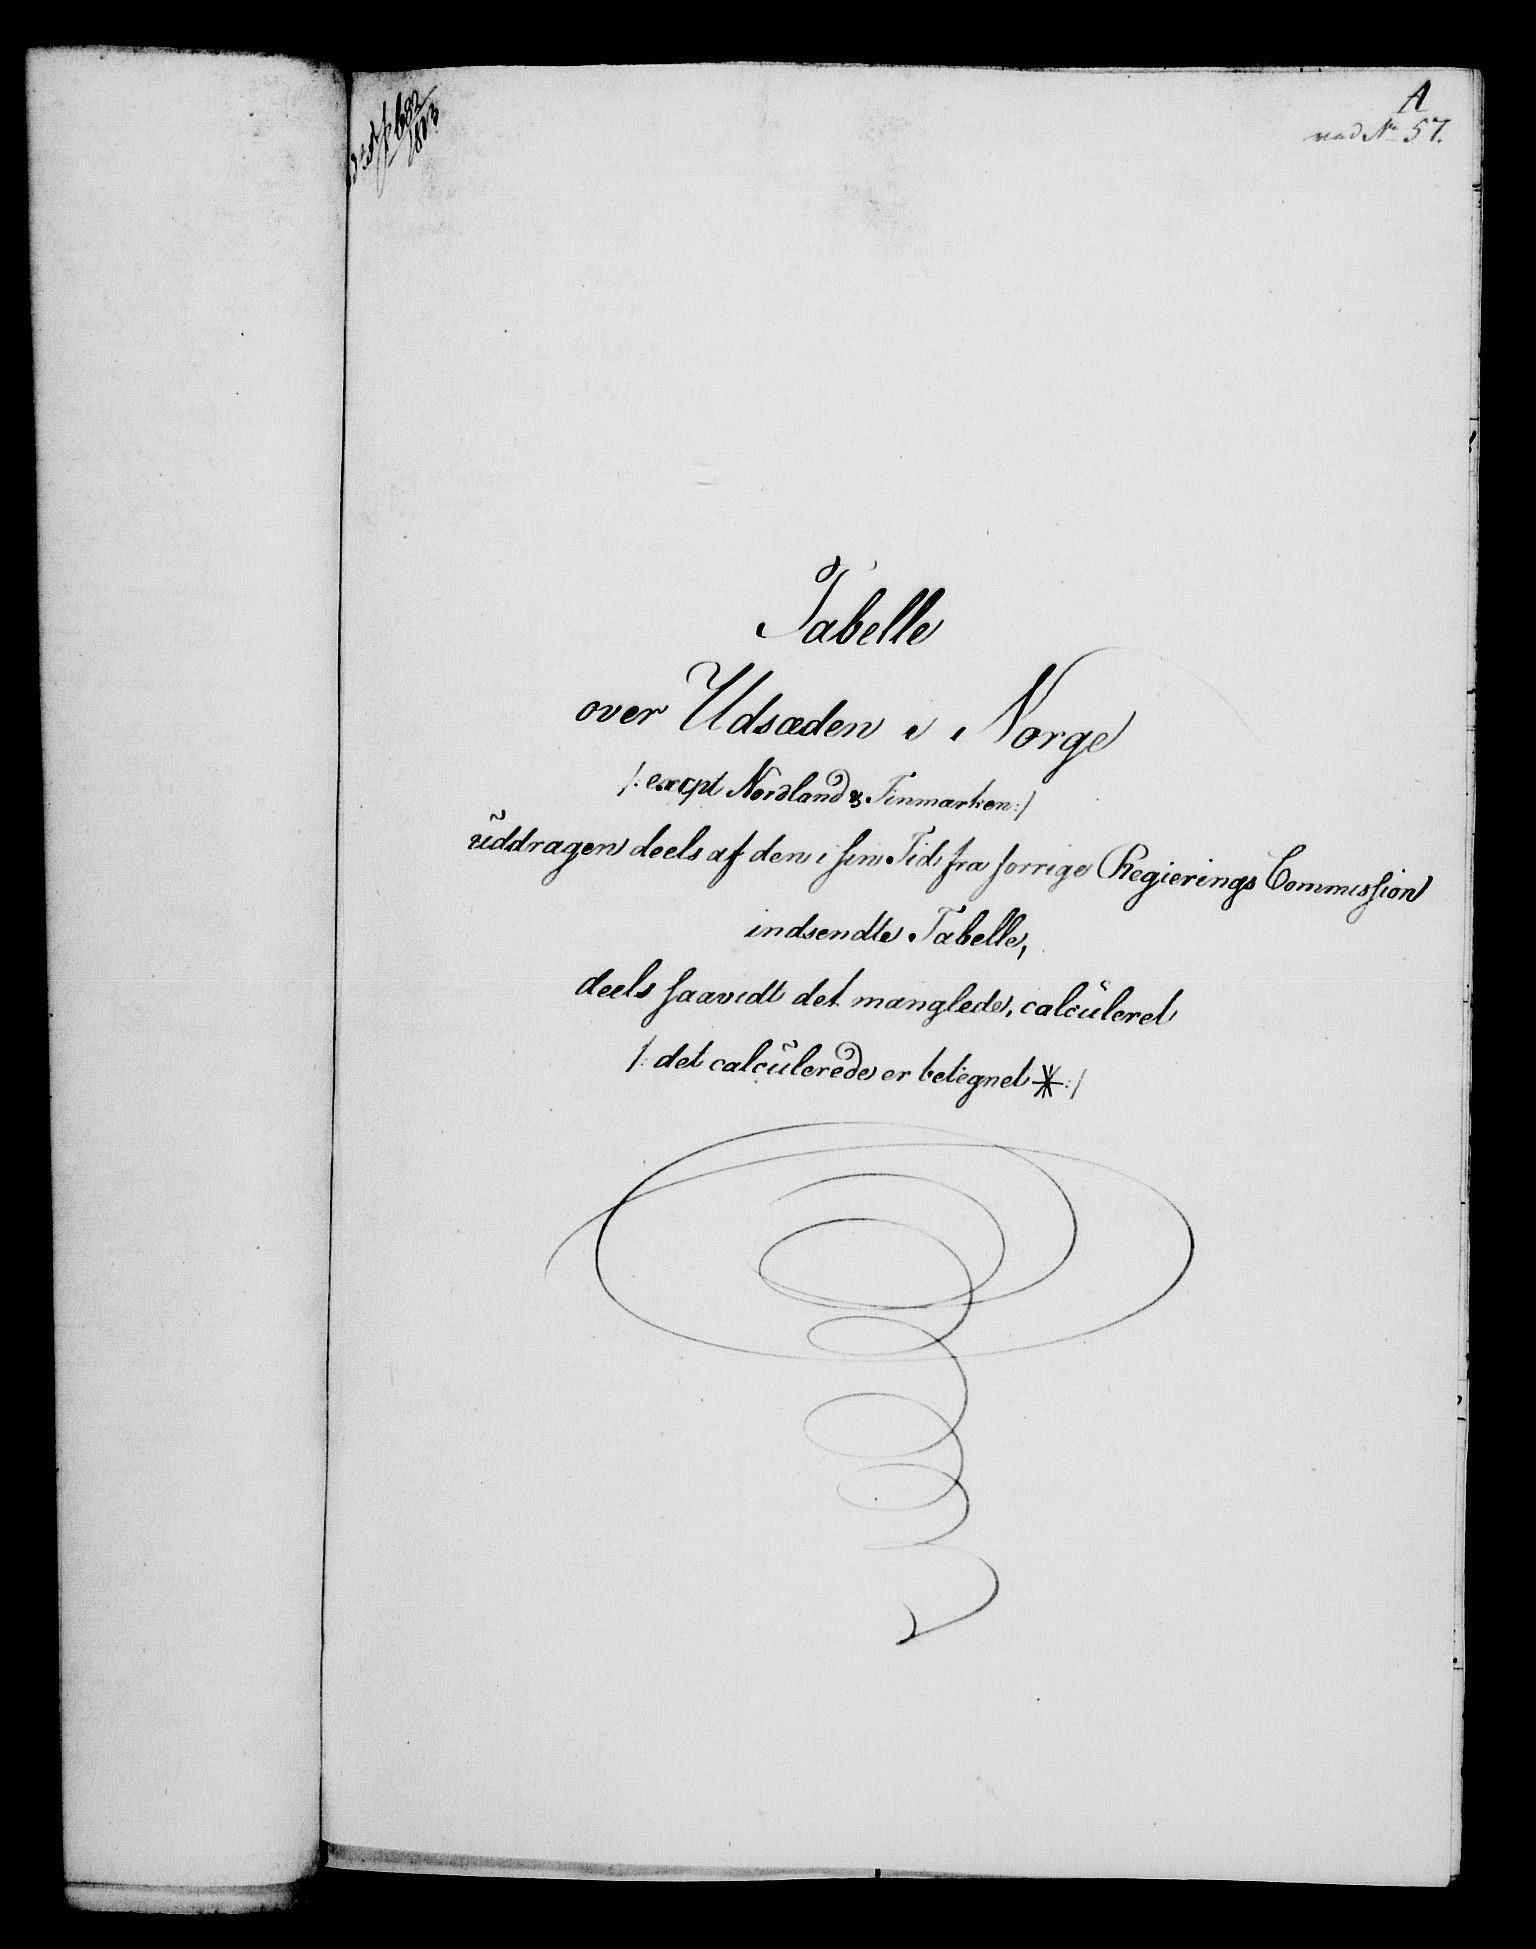 A
ved No 57.
682/1813
Tabelle
over Udsæden i Norge
/: excpt Nordland & Finmarken :/
uddragen deels af den i sin Tid fra forrige Regierings Commission
indsendte Tabelle,
deels saavidt det manglede, calculeret
/: det calculerede er betegnet * :/